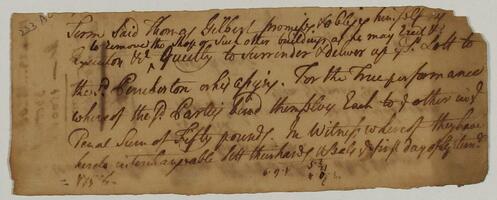 Term Said Thomas Gilbert promises & obliges himself
to remove the Shop or Such other building as he may Erect &
Quietly to Surrender & deliver up ye Sd. Lott to
the Sd. Pemberton or his assigns. For the True performance
whereof the Sd. Parties bind themselves Each to ye other in ye
Penal Sum of Fifty pounds. In Witness whereof they have
hereto interchangeable Sett their hands & Seals ye first day of